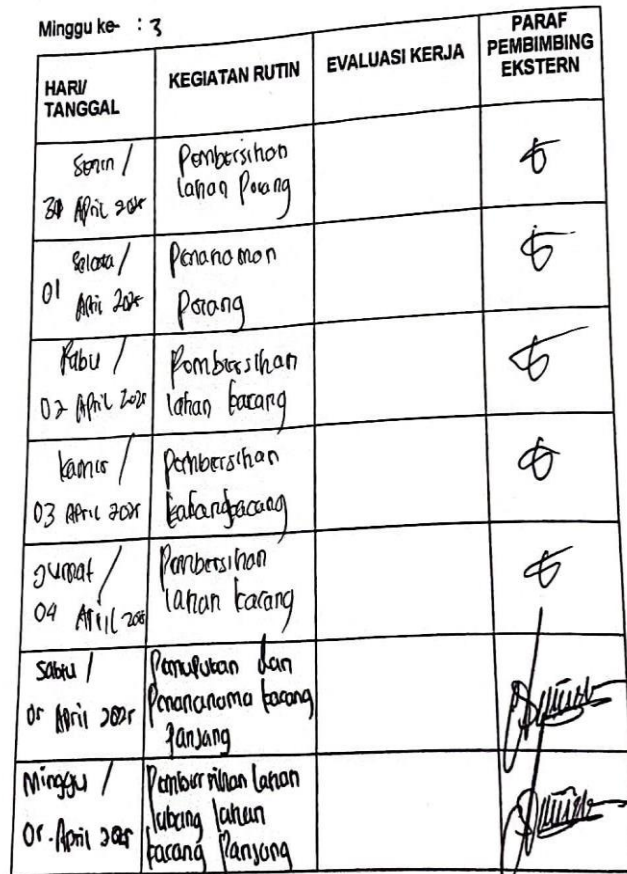 Minggu ke- : 3
HARI/ TANGGAL
KEGIATAN RUTIN
EVALUASI KERJA
PARAF PEMBIMBING EKSTERN
Senin /
April 2025
Pembersihan
lahan Porang
Selasa /
01 April 2025
Penanaman
Porang
Rabu /
02 April 2025
Pembersihan
lahan kacang
Kamis /
03 April 2025
Pembersihan
kacang
Jumat /
04 April 2025
Pembersihan
lahan kacang
Sabtu /
05 April 2025
Pemupukan dan
Penananama kacang
Panjang
Minggu /
April 2025
Pembersihan lahan
lubang lahan
kacang Panjang